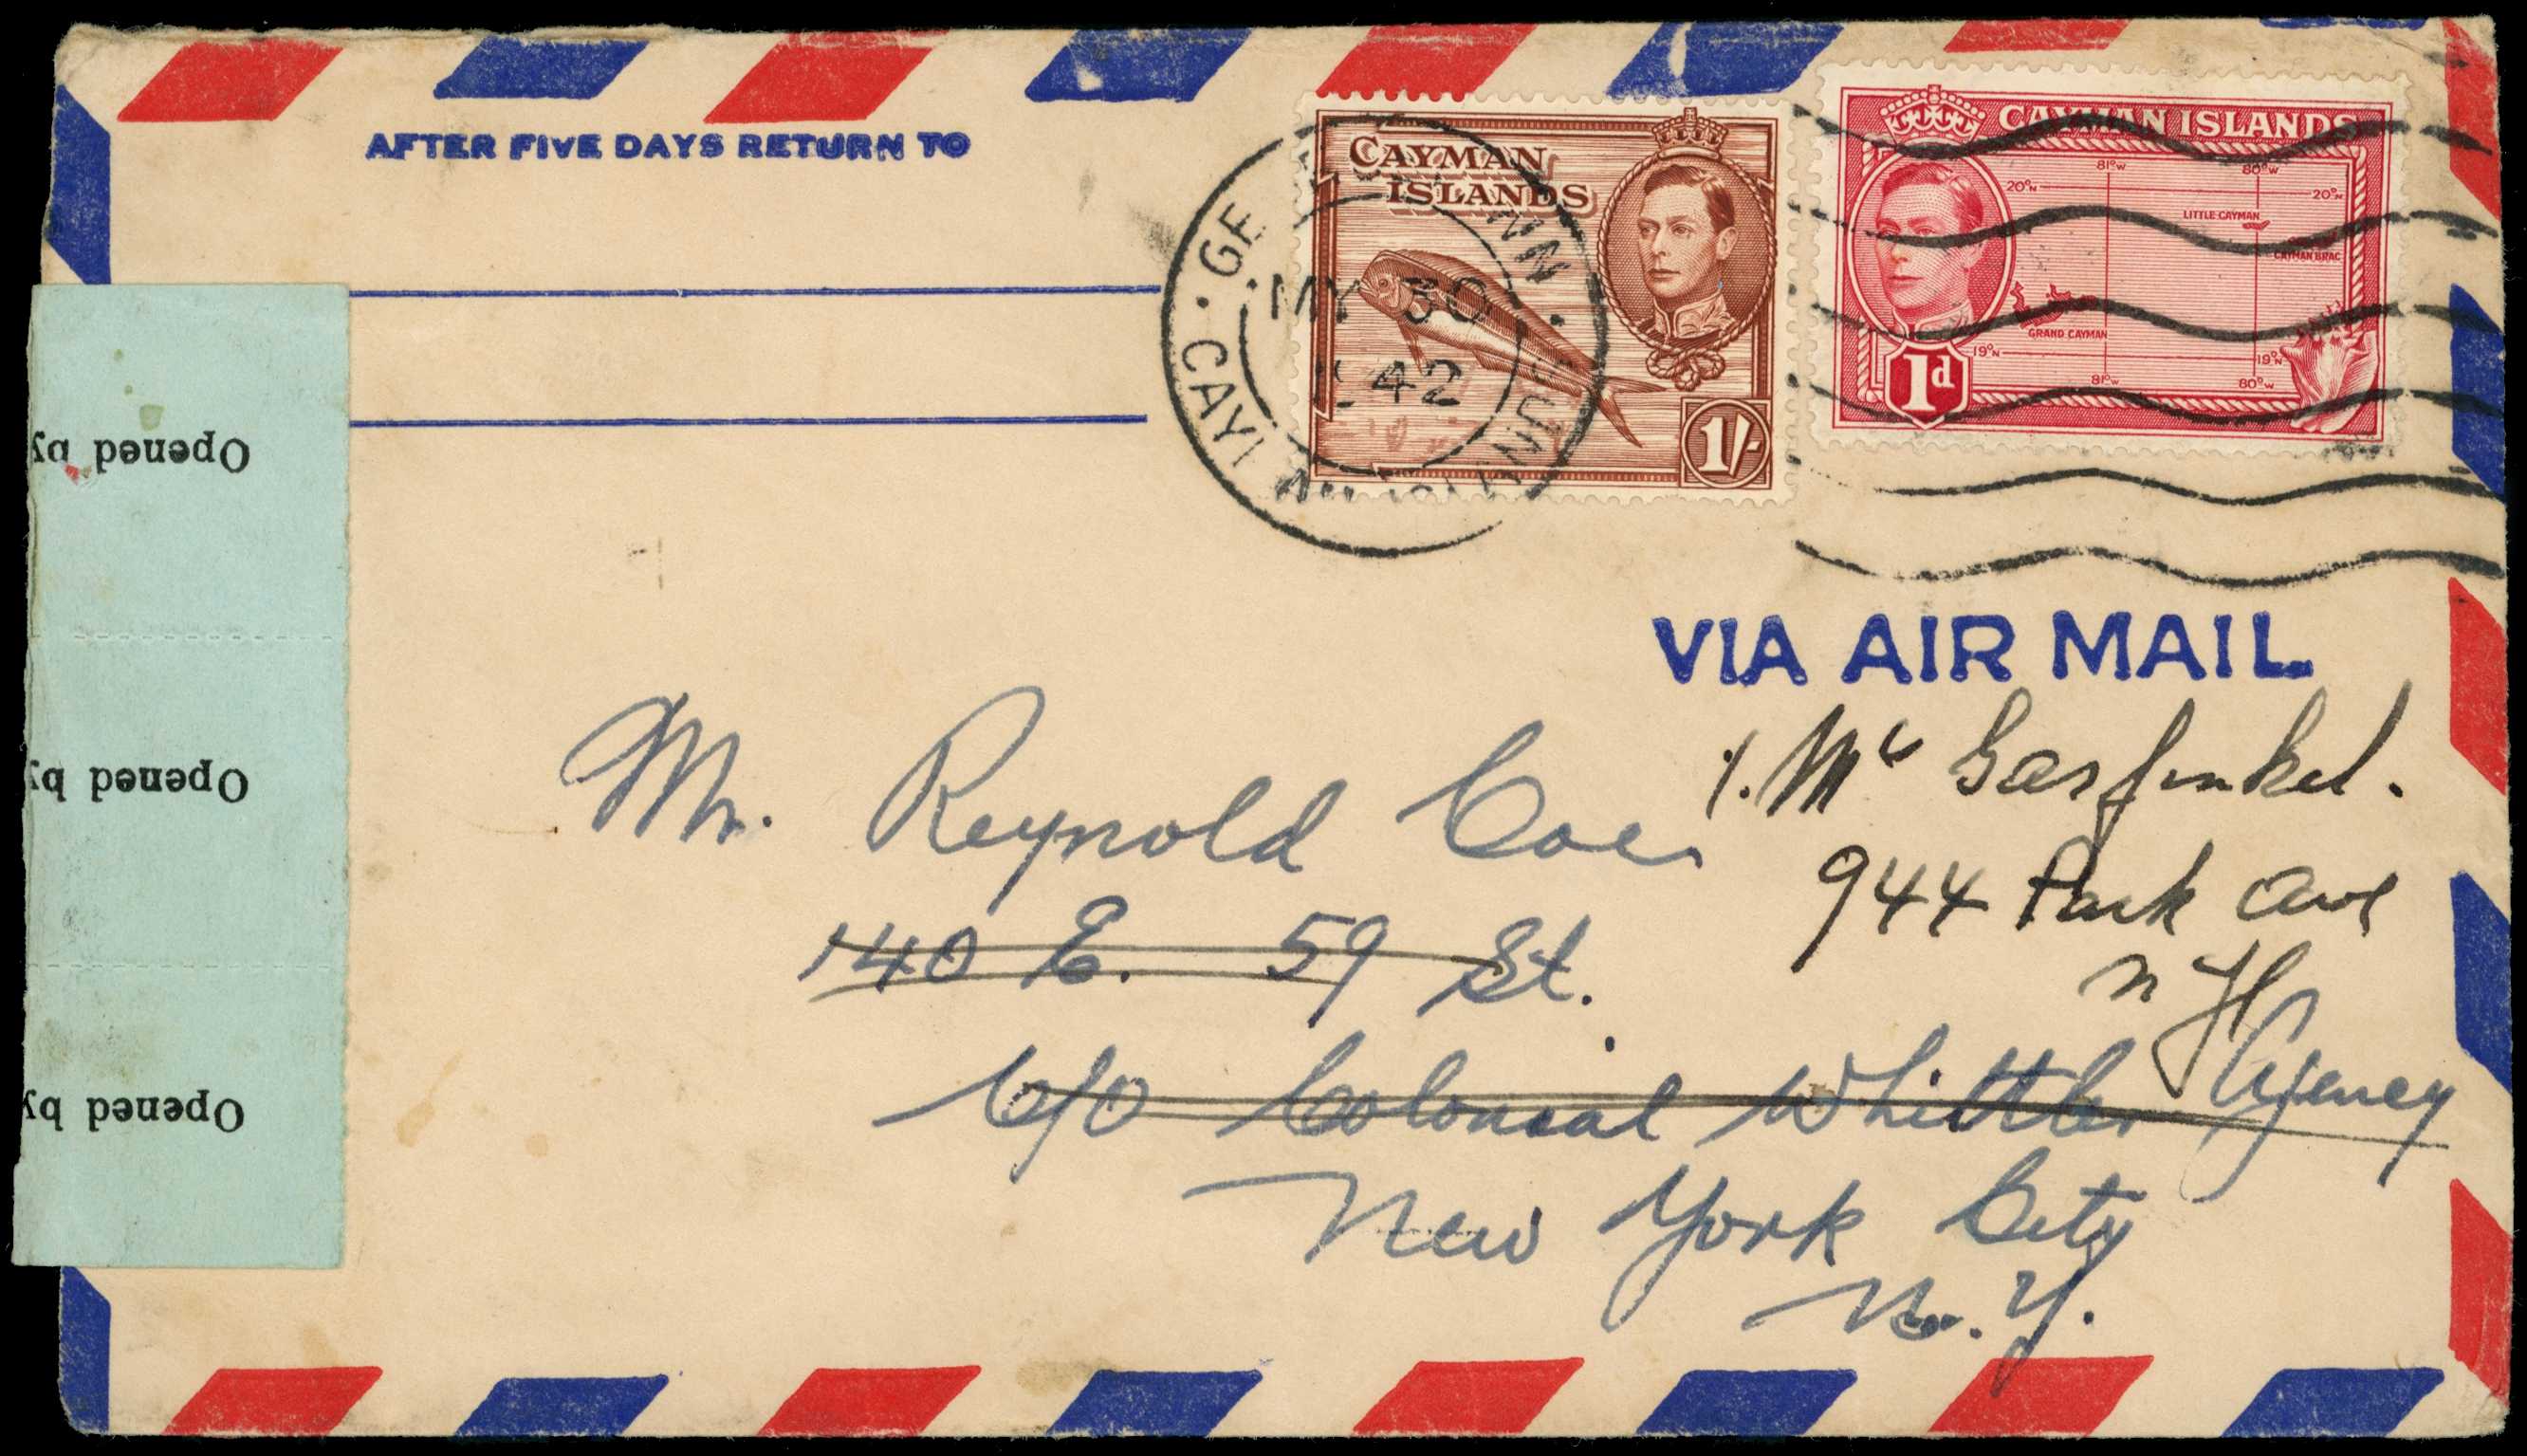 AFTER FIVE DAYS RETURN TO
CAYMAN
ISLANDS
1/-
CAYMAN ISLANDS
81°W 80°W
20°N 20°N
LITTLE CAYMAN
CAYMAN BRAC
GRAND CAYMAN
19°N 19°N
81°W 80°W
1d
GE WN
MY 30
1942
CAY ISLANDS
VIA AIR MAIL
Opened by
Opened by
Opened by
Mr. Reynold Coe
140 E. 59 St.
C/O Colonial Whittler Agency
New York City
N.Y.
Garfinkel.
944 Park Ave
N Y